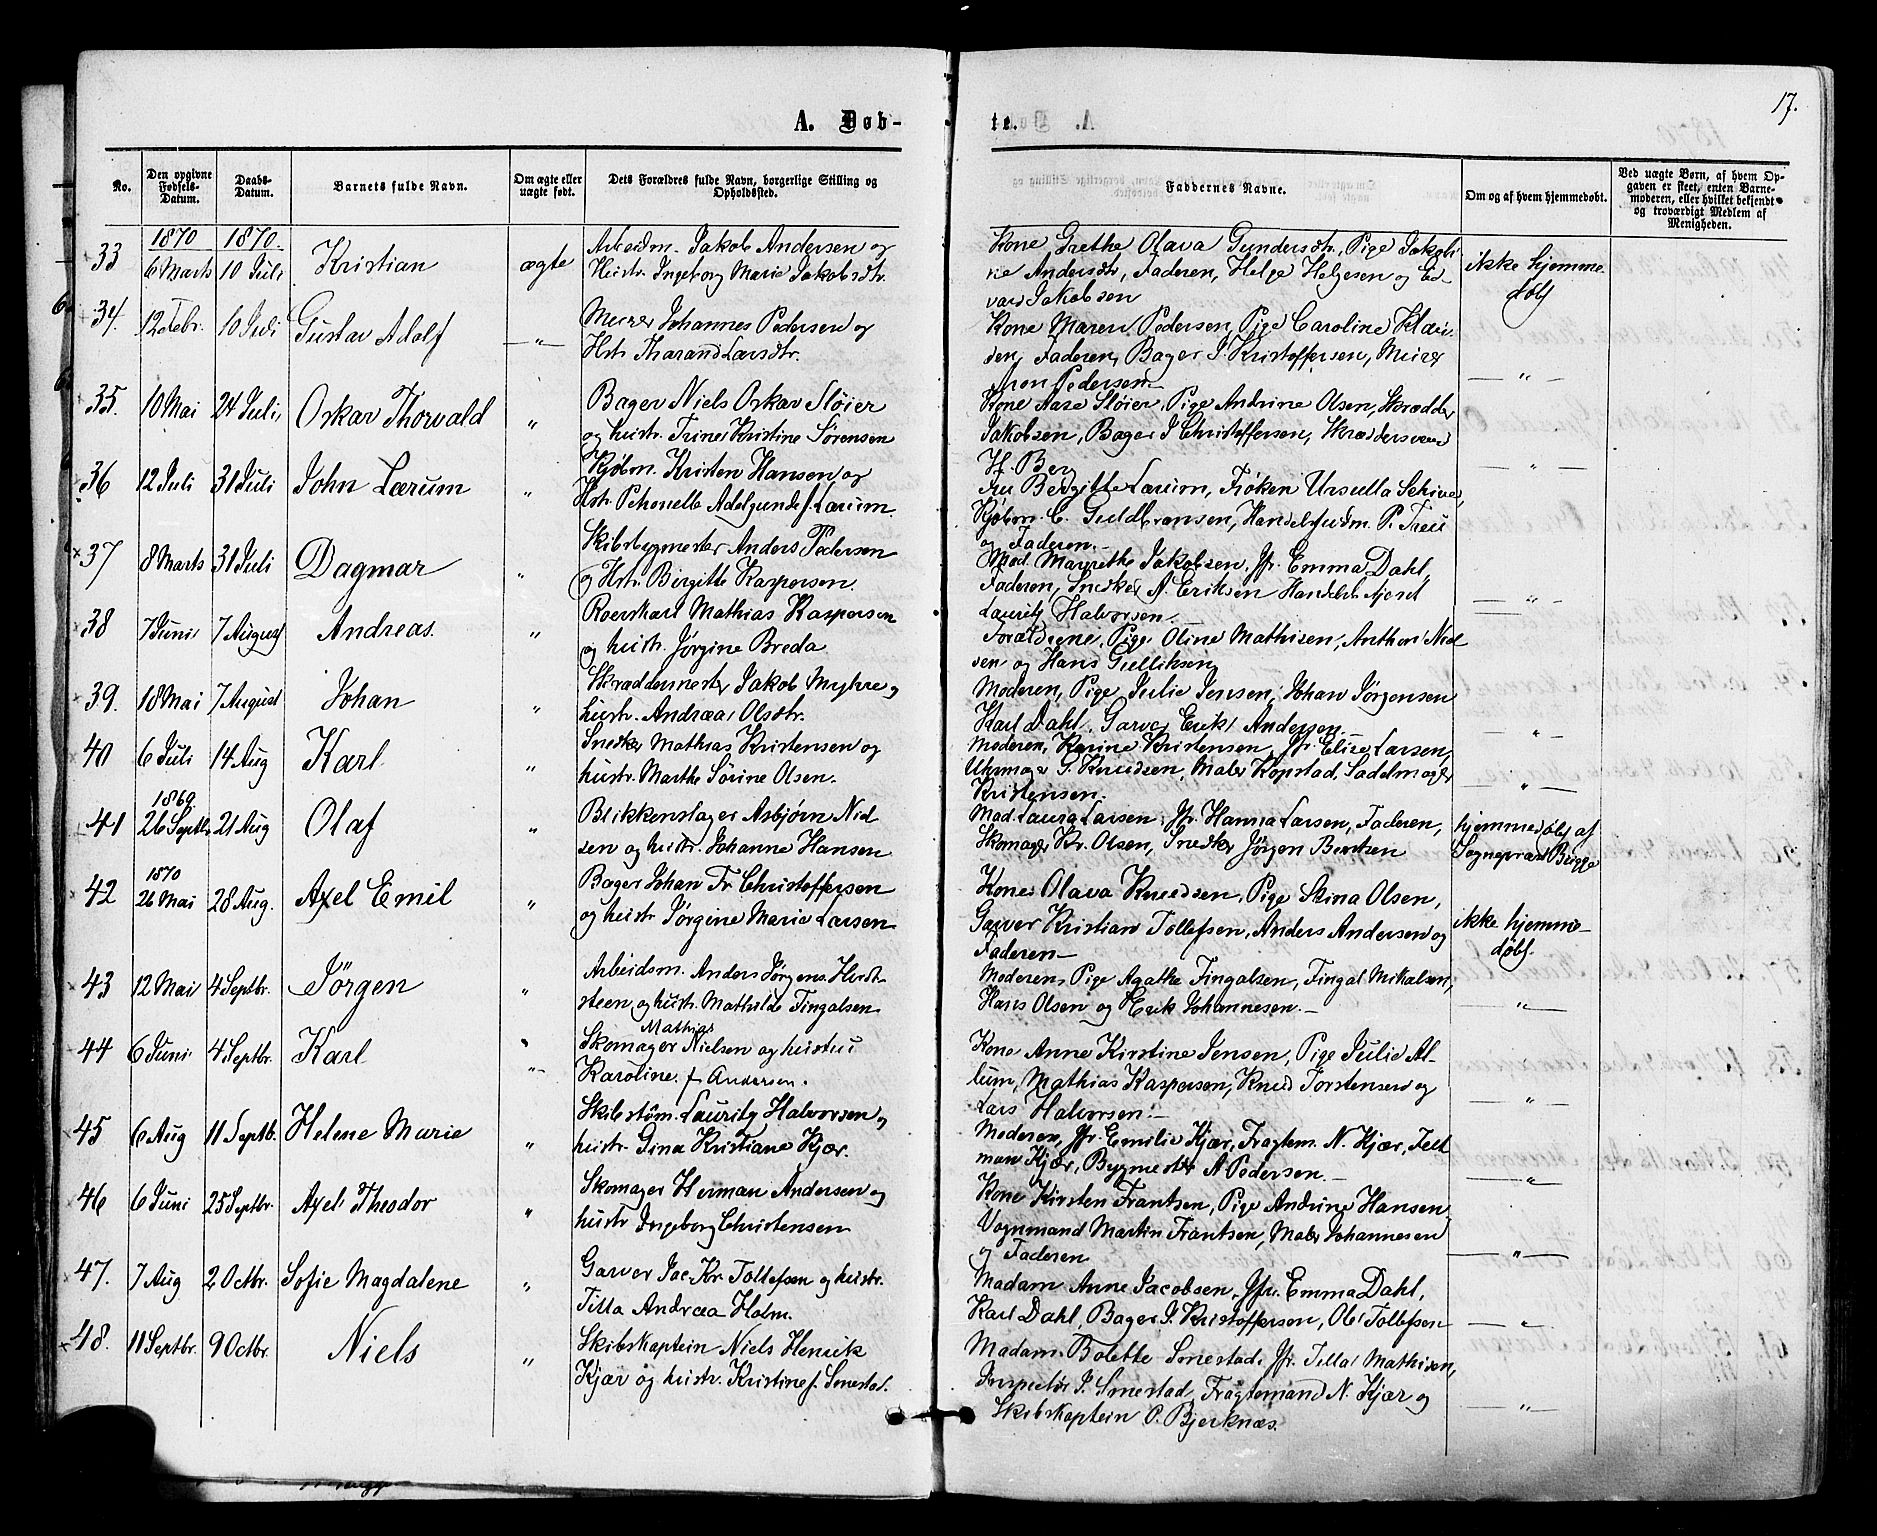 17.
A. Døb-
te.
No.
Den opgivne Fødsels-Datum.
Daabs-Datum.
Barnets fulde Navn.
Om ægte eller uægte født.
Dets Forældres fulde Navn, borgerlige Stilling og Opholdssted.
Faddernes Navne.
Om og af hvem hjemmedøbt.
Ved uægte Børn, af hvem Opgaven er skeet, enten Barnemoderen, eller hvilket bekjendt og troværdigt Medlem af Menigheden.
33 1870 6 Marts 1870 10 Juli Kristian ægte
Arbeidm. Jakob Andersen og
Hustr. Ingeborg Marie Jakobsdtr.
Kone Grethe Olava Gundersdtr, Pige Jakobi
ne Andersdtr, Faderen, Helge Helgesen og Ed
vard Jakobsen
ikke hjemme
døbt
34. 12 Febr. 10 Juli Gustav Adolf — " —
Murer Johannes Pedersen og
Hstr. Tharand Larsdtr.
Kone Maren Pedersen, Pige Caroline Klau
sen, Faderen, Bager J Kristoffersen, Murer
Aron Pedersen
— " —
35. 10 Mai 24 Juli, Oskar Thorvald "
Bager Niels Oskar Sløier
og hustr. Trine Kristine Sørensen
Kone Aase Sløier, Pige Andrine Olsen, Skrædder
Jakobsen, Bager J Christoffersen, Skræddersvend
H. Berg
— " —
36 12 Juli 31 Juli John Lærum "
Kjøbm. Kristen Hansen og
Hstr. Petronelle Adelgunde f. Lærum.
Fru Bergitte Lærum, Frøken Ursulla Schive,
Kjøbm. C. Guldbransen, Handelsfuldm. P. Treu
og Faderen.
37 8 Marts 31 Juli Dagmar "
Skibsbygmester Anders Pedersen
og Hstr. Birgitte Kaspersen.
Mad. Margrethe Jakobsen, Jfr. Emma Dahl,
Faderen, Snedker A. Eriksen Handelsbetjent
Lauritz Halvorsen
— " —
38 7 Juni 7 August Andreas. "
Roerskarl Mathias Kaspersen
og hustr. Jørgine Breda
Forældrene, Pige Oline Mathisen, Anthon Niel
sen og Hans Gulliksen
39. 18 Mai 7 August Johan "
Skræddermester Jakob Myhre og
hustr. Andrea Olsdtr.
Moderen, Pige Julie Jensen, Johan Jørgensen
Karl Dahl, Garver Erik Andersen
— " —
40 6 Juli 14 Aug Karl "
Snedker Mathias Kristensen og
hustr. Marthe Sørine Olsen.
Moderen, Karine Kristensen, Jfr. Elise Larsen,
Uhrmager G. Knudsen, Maler Kopstad, Sadelmager
Kristensen.
— " —
41 1869. 26 Septbr 21 Aug Olaf "
Blikkenslager Asbjørn Niel
sen og hustr. Johanne Hansen
Mad. Laura Larsen, Jfr. Hanna Larsen, Faderen,
Skomager Kr. Olsen, Snedker Jørgen Berntsen
hjemmedøbt af
Sognepræst Brigge
42 1870 26 Mai 28 Aug. Axel Emil "
Bager Johan Fr Christoffersen
og hustr Jørgine Marie Larsen
Kone Olava Knudsen, Pige Stina Olsen,
Garver Kristian Tollefsen, Anders Andersen og
Faderen
ikke hjemme-
døbt.
43 12 Mai 4 Septbr. Jørgen "
Arbeidsm. Anders Jørgens. Hvidt-
steen og hustr. Mathilde Fingalsen
Moderen, Pige Agathe Fingalsen, Fingal Mikalsen,
Hans Olsen og Erik Johannesen.
— " —
44 6 Juni 4 Septbr. Karl "
Skomager Mathias Nielsen og hustru
Karoline f. Andersen.
Kone Anne Kirstine Jensen, Pige Julie Al-
lum, Mathias Kaspersen, Knud Torstensen og
Lars Halvorsen.
— " —
45 6 Aug 11 Septb. Helene Marie "
Skibstøm. Lauritz Halvorsen og
hustr. Gina Kristiane Kjær.
Moderen, Jfr. Emilie Kjær, Fragtem. N. Kjær, Telt
man Kjær, Bygmester A Pedersen.
— " —
46 6 Juni 25 Septbr. Axel Theodor "
Skomager Herman Andersen og
hustr Ingeborg Christensen
Kone Kirsten Frantsen, Pige Andrine Hansen,
Vognmand Martin Frantsen, Maler Johannesen
og Faderen
— " —
47. 7 Aug 2 Octbr. Sofie Magdalene "
Garver Jac. Kr. Tollefsen og hustr.
Tilla Andrea Holm.
Madam Anne Jacobsen, Jfr. Emma Dahl,
Karl Dahl, Bager J. Kristoffersen, Ole Tollefsen
— " —
48. 11 Septbr. 9 Octbr. Niels "
Skibskaptein Niels Henrik
Kjær og hustr. Kristine f. Smestad.
Madam Bolette Smestad, Jfr. Tilla Mathisen,
Inspektør J. Smestad, Fragtemand N. Kjær og
Skibskaptein P. Bjerknæs.
— " —